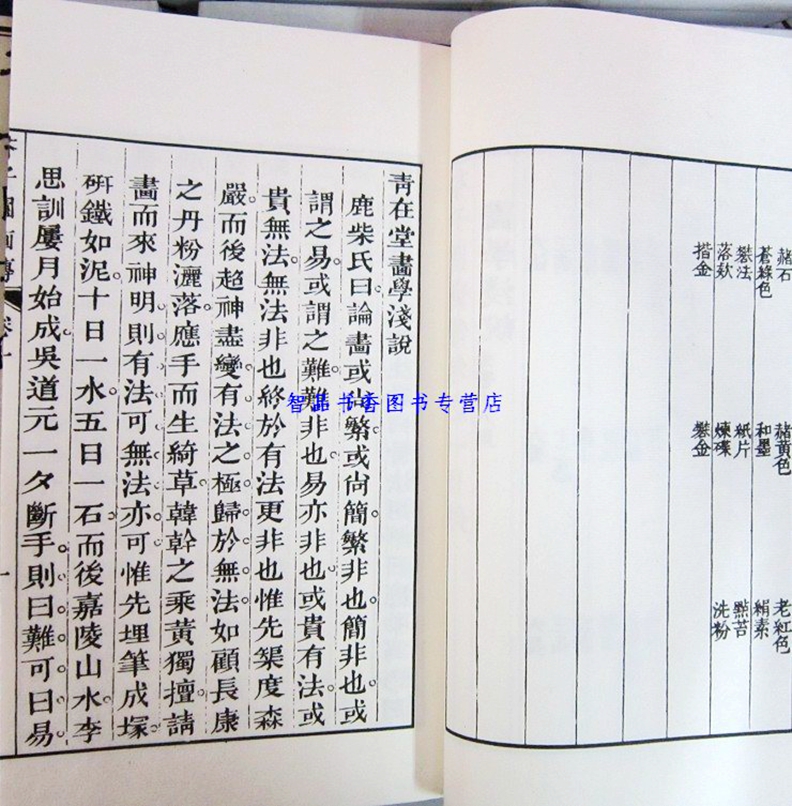 赭石 赭黃色 老紅色
蒼綠色 和墨 絹素
礬法 紙片 㸃苔
落款 煉碟 洗粉
揩金 礬金
青在堂畫學淺說
鹿柴氏曰論畫或尚繁或尚簡。繁非也。簡非也。或
謂之易。或謂之難。難非也。易亦非也。或貴有法。或
貴無法。無法非也。終於有法更非也。惟先榘度森
嚴。而後超神盡變。有法之極。歸於無法。如顧長康
之丹粉灑落。應手而生綺草。韓幹之乘黃獨擅。請
畫而來神明。則有法可。無法亦可。惟先埋筆成塚。
研鐵如泥。十日一水。五日一石。而後嘉陵山水。李
思訓屢月始成。吳道元一夕斷手。則曰難可。曰易
智品书香图书专营店